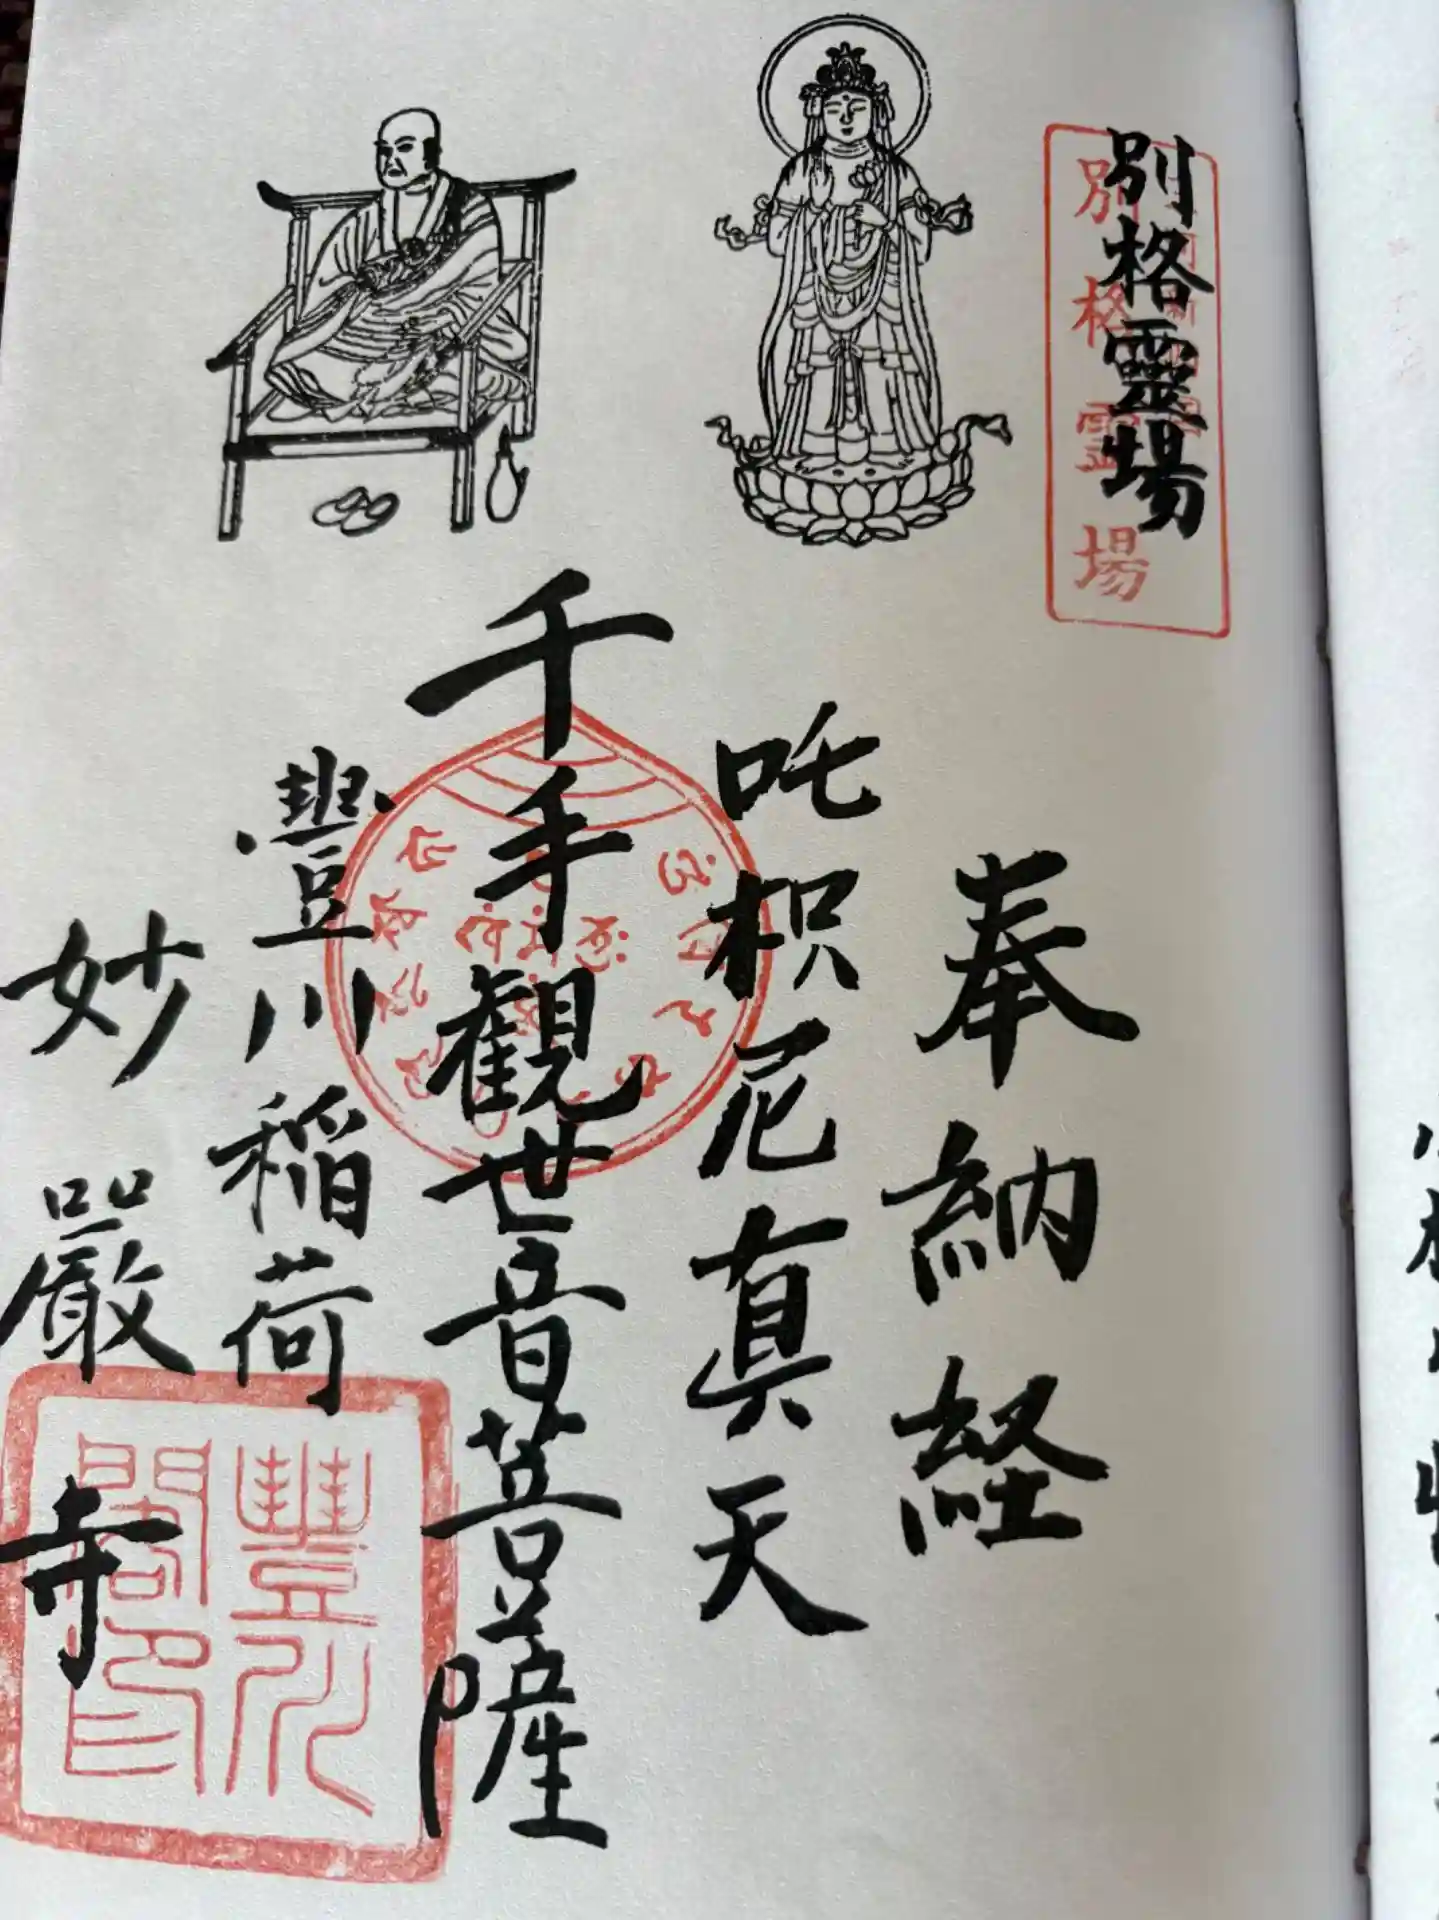 別格靈場
別格霊場
奉納経
吒枳尼真天
千手觀世音菩薩
豐川稲荷
妙嚴寺
豐川
閣印